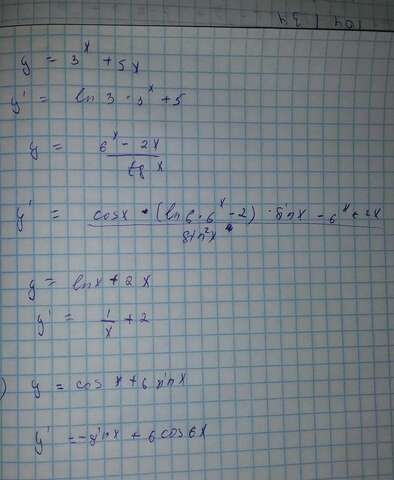 y = 3^x + 5x
y' = ln 3 · 3^x + 5
y = (6^x - 2x) / tg x
y' = (cosx · (ln6 · 6^x - 2) · sinx - 6^x + 2x) / sin²x
y = lnx + 2x
y' = 1/x + 2
) y = cos x + 6 sinx
y' = -sinx + 6cos6x